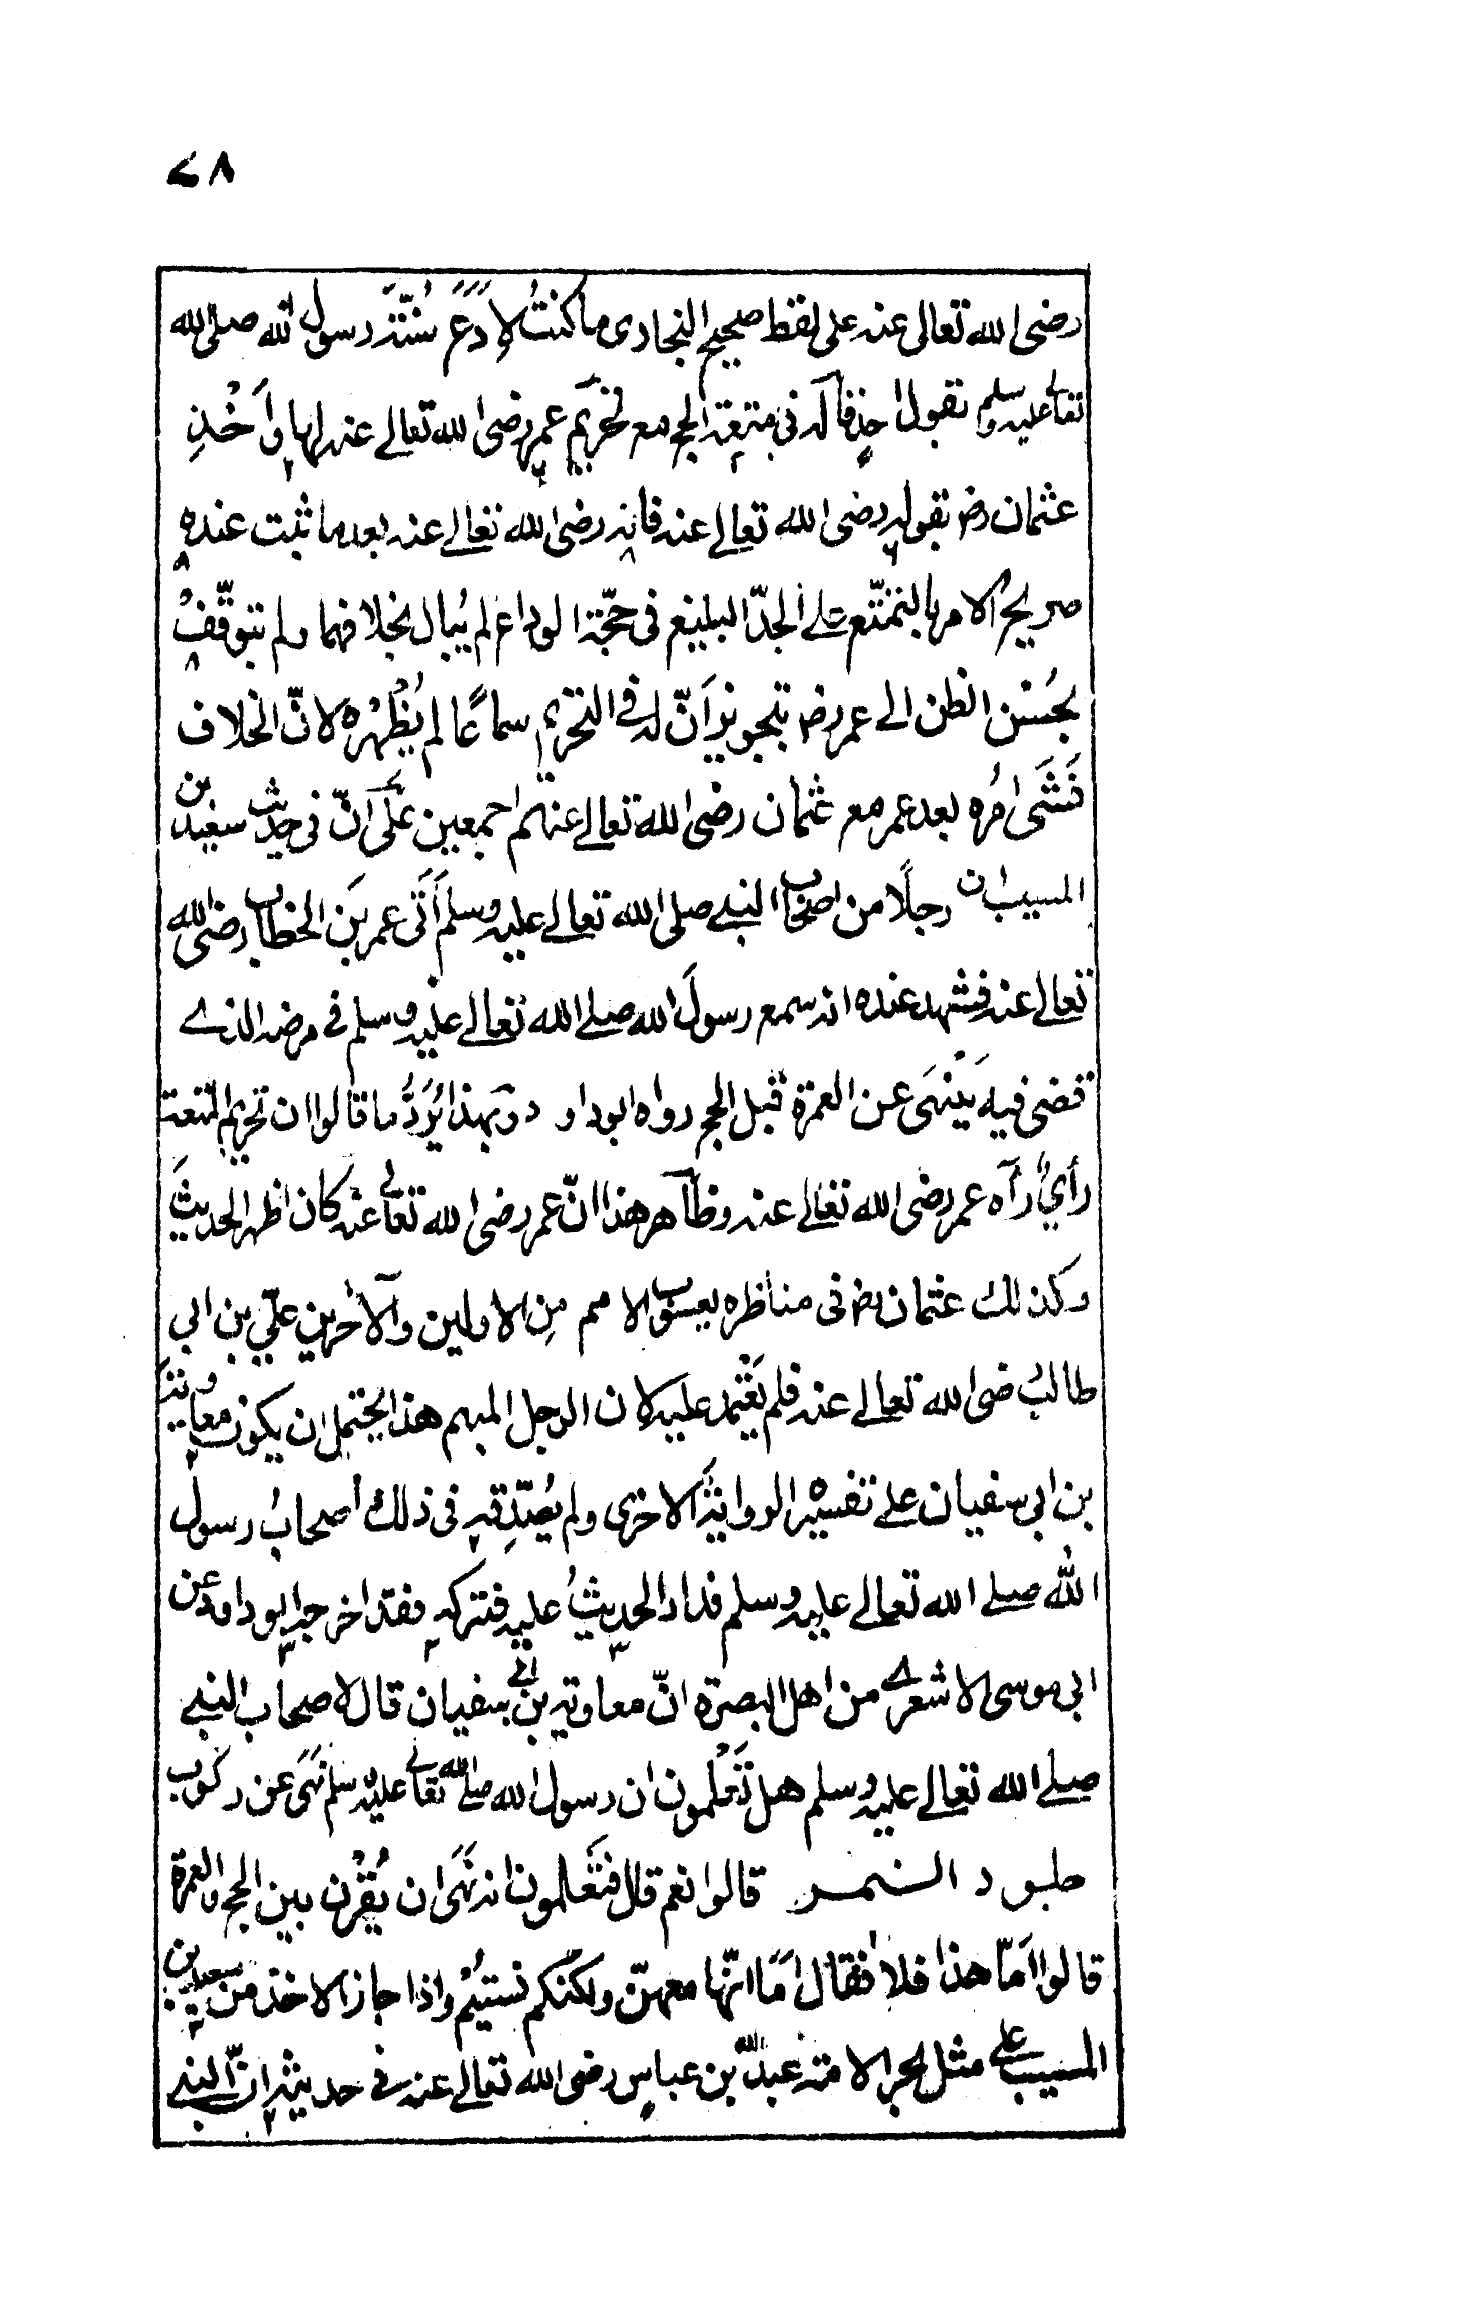 ٧٨
رضى الله تعالى عنه على لفظ صحيح البخارى ما كنتُ لِاَدَعَ سُنّتَه رسول الله صلى الله
تعالى عليه وسلم بقول احدٍ قاله فى متعة الحج مع تحريم عمر رضى الله تعالى عنه لها واَخْذِ
عثمان رض بقوله رضى الله تعالى عنه فانه رضى الله تعالى عنه بعد ما ثبت عنده
صريحُ الامر بالتمتّع على الجدّ البليغ فى حجّة الوداع لم يُبال بخلافهما ولم يتوقّفْ
بحُسْن الظن الى عمر رض بتجويز اَنّ له فى التحريم سماعًا لم يُظْهِرْه لانّ الخلاف
نَشَى امرُه بعد عمر مع عثمان رضى الله تعالى عنهم اجمعين عَلَى اَنّ فى حديث سعيد بن
المسيب ان رجلًا من اصحاب النبى صلى الله تعالى عليه وسلم اَتَى عمر بَن الخطاب رضى الله
تعالى عنه فشهد عنده انه سمع رسولَ الله صلى الله تعالى عليه وسلم فى مرضه الذى
قضى فيه يَنْهَى عن العمرة قبل الحج رواه ابوداود وبهذا يُرَدُّ ما قالوا ان تحريم المتعة
رأيٌ رآه عمر رضى الله تعالى عنه وظاهر هذا انّ عمر رضى الله تعالى عنه كان اظهر الحديثَ
وكذلك عثمان رض فى مناظره يعسوب الامم مِن الاولين والآخرين علىّ بن ابى
طالب رضى الله تعالى عنه فلم يَعْتمد عليه لان الرجل المبهم هذا يحتمل ان يكون معاوية
بن ابى سفيان على تفسير الرواية الاخرى ولم يُصَدّقه فى ذلك اصحابُ رسول
الله صلى الله تعالى عليه وسلم فدار الحديثُ عليه فتركه فقد اخرجه ابوداود عن
ابى موسى الاشعرى من اهل البصرة انّ معاوية بن ابى سفيان قال لاصحاب النبى
صلى الله تعالى عليه وسلم هل تَعْلمون ان رسول الله صلى الله تعالى عليه وسلم نَهَى عن ركوب
جلود النمر قالوا نعم قال فتَعلمون انه نَهَى ان يُقْرن بين الحج والعمرة
قالوا اَمّا هذا فلا فقال اَمَا انّها معهنّ ولكنّكم نسيتُمْ واذا جاز الاخذ من سعيد بن
المسيب على مثل بحر الامة عبد الله بن عباس رضى الله تعالى عنه فى حديثه انّ النبى